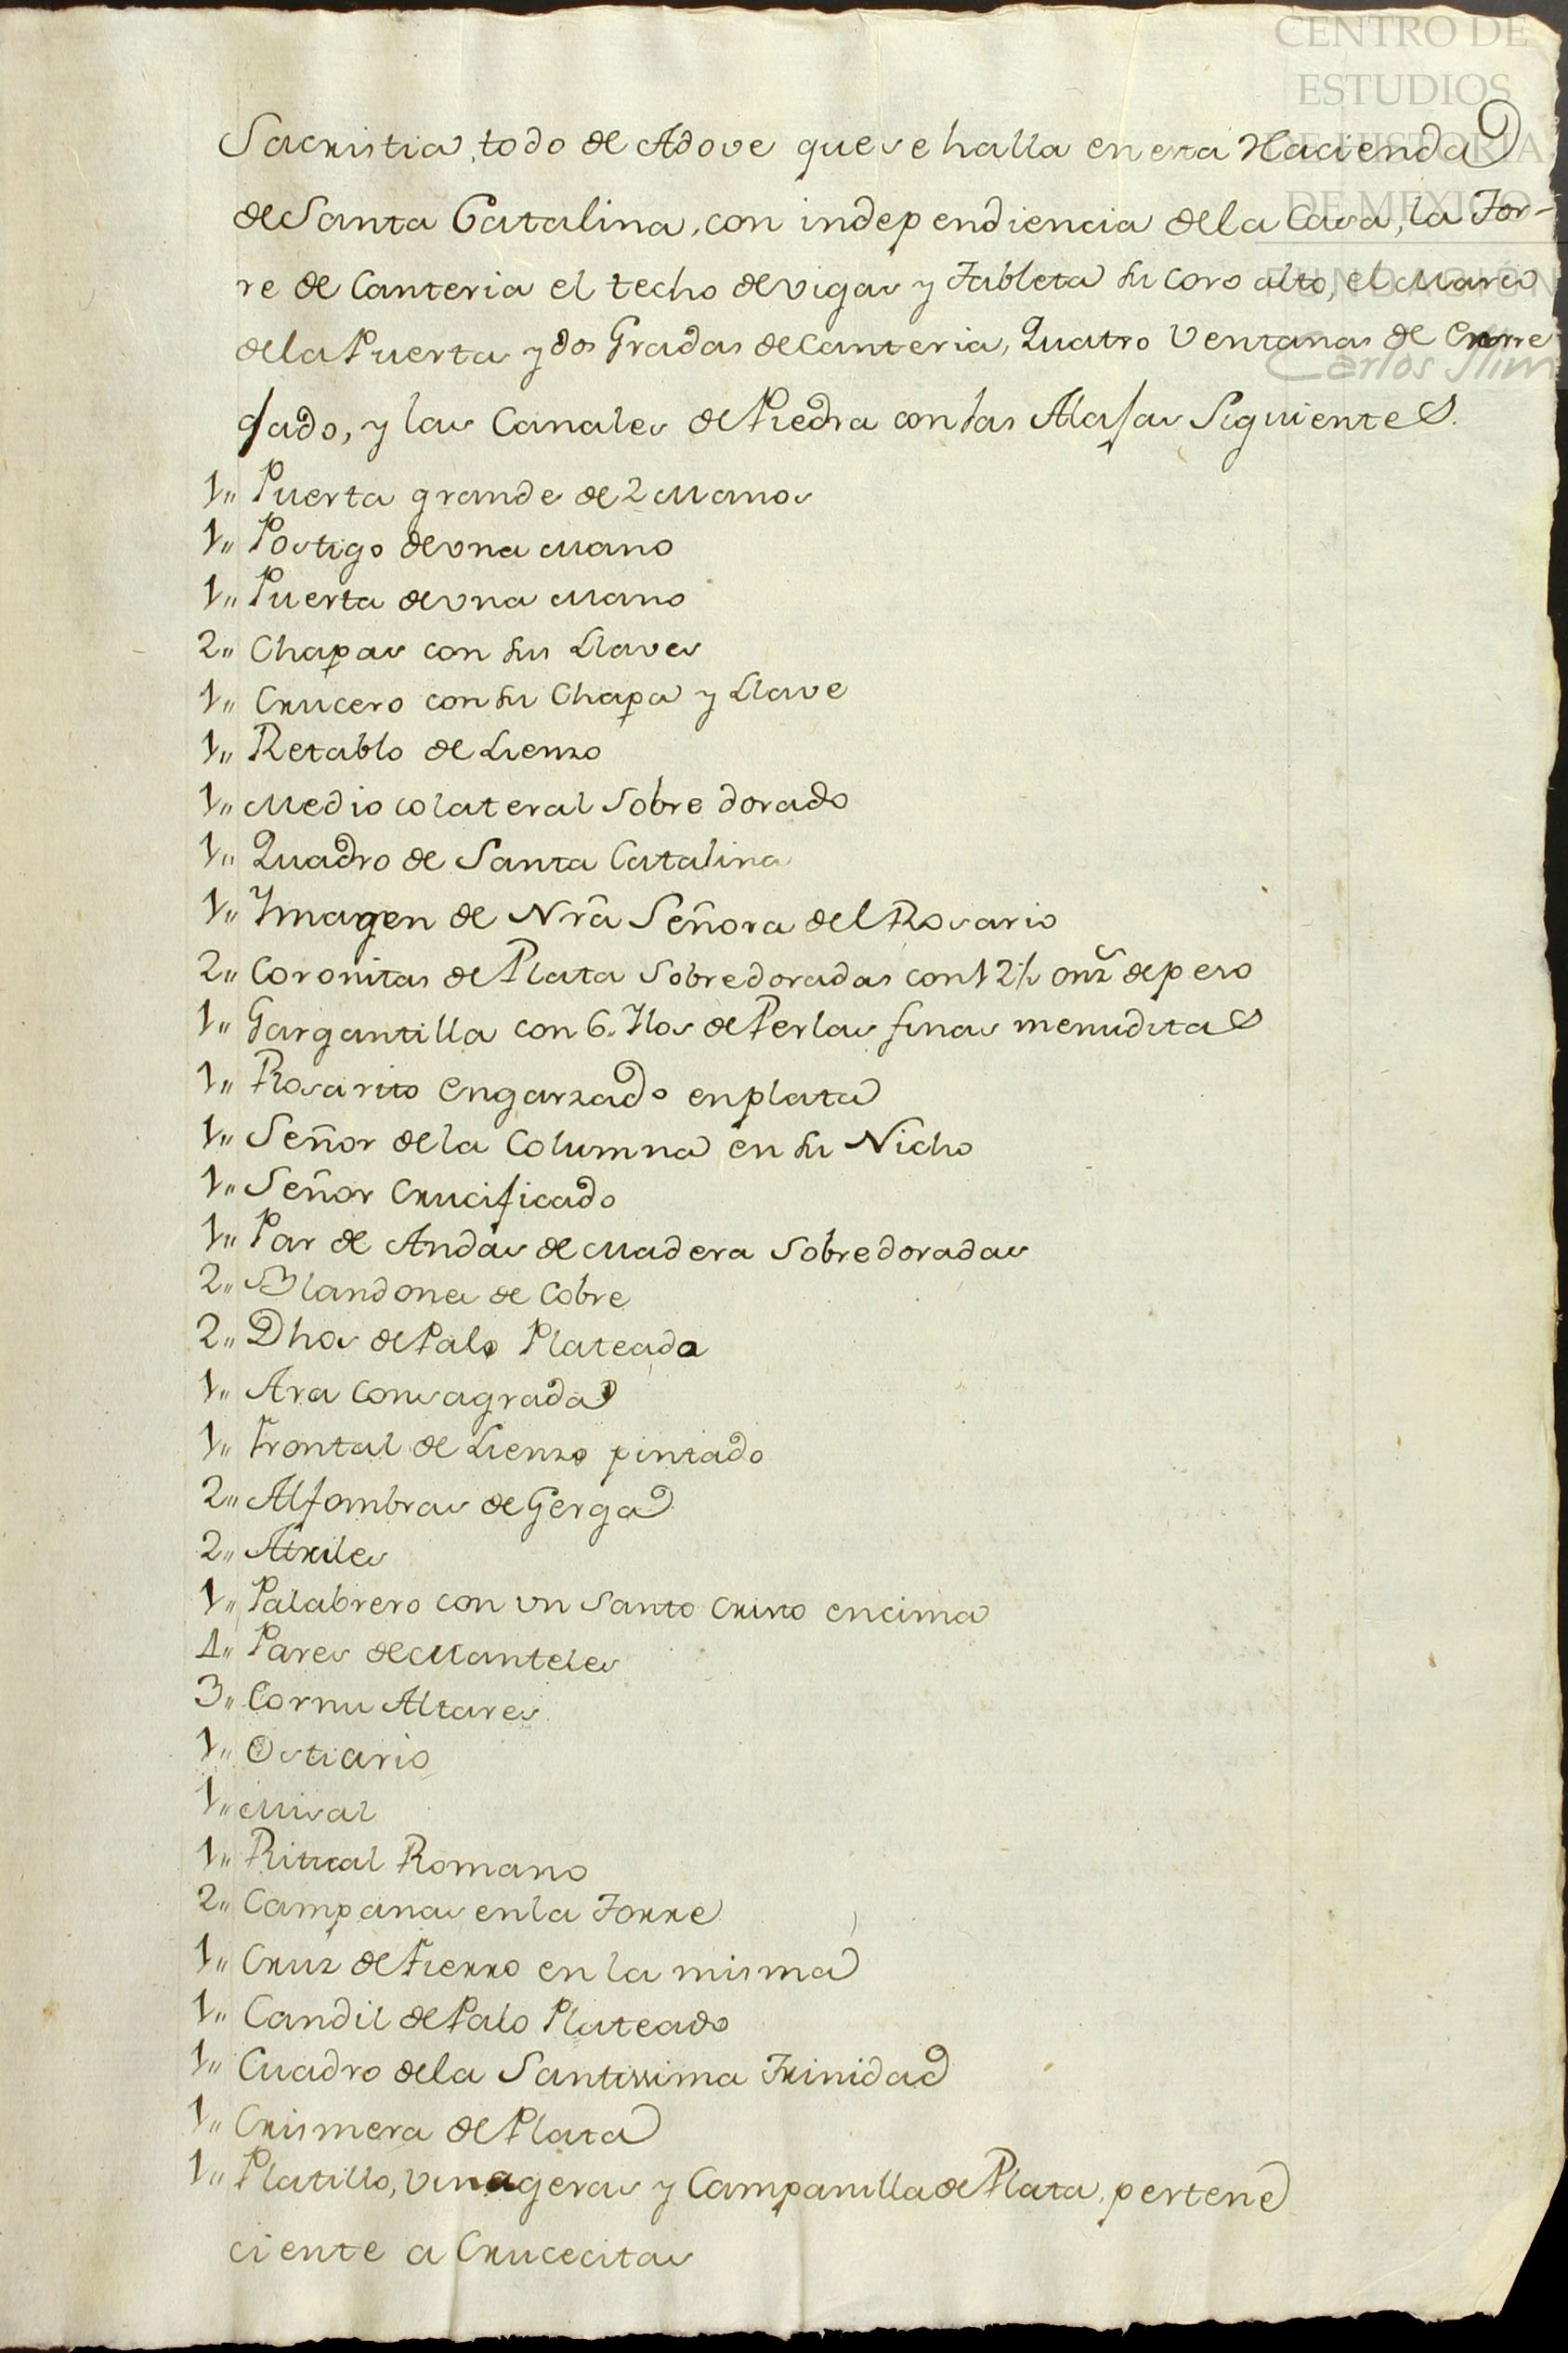 CENTRO DE
ESTUDIOS
DE HISTORIA
DE MEXICO
FUNDACIÓN
Carlos Slim
Sacristia, todo de Adove que se halla en esta Hacienda
de Santa Catalina, con independiencia de la Casa, la Tor-
re de Canteria el techo de vigas y Tableta su coro alto, el Marco
de la Puerta y dos Gradas de Canteria, Quatro Ventanas de Enrre
jado, y las Canales de Piedra con las Alajas Siguientes.
1,, Puerta grande de 2 Manos
1,, Postigo de vna Mano
1,, Puerta de vna Mano
2,, Chapas con sus Llaves
1,, Crucero con su Chapa y Llave
1,, Retablo de Lienzo
1,, Medio colateral Sobre dorado
1,, Quadro de Santa Catalina
1,, Ymagen de Nrã Señora del Rosario
2,, Coronitas de Plata Sobredoradas con 12½ onz.s de peso
1,, Gargantilla con 6. Ylos de Perlas finas menuditas
1,, Rosarito Engarzado en plata
1,, Señor de la Columna en su Nicho
1,, Señor Crucificado
1,, Par de Andas de Madera Sobredoradas
2,, Blandones de Cobre
2,, Dhos de Palo Plateado
1,, Ara Consagrada
1,, Frontal de Lienzo pintado
2,, Alfombras de Gerga
2,, Atriles
1,, Palabrero con vn Santo Cristo encima
4,, Pares de Manteles
3,, Cornu Altares
1,, Ostiario
1,, Misal
1,, Ritual Romano
2,, Campanas en la Torre
1,, Cruz de Fierro en la misma
1,, Candil de Palo Plateado
1,, Cuadro de la Santissima Trinidad
1,, Crismera de Plata
1,, Platillo, Vinageras y Campanilla de Plata, pertene
ciente a Crucecitas